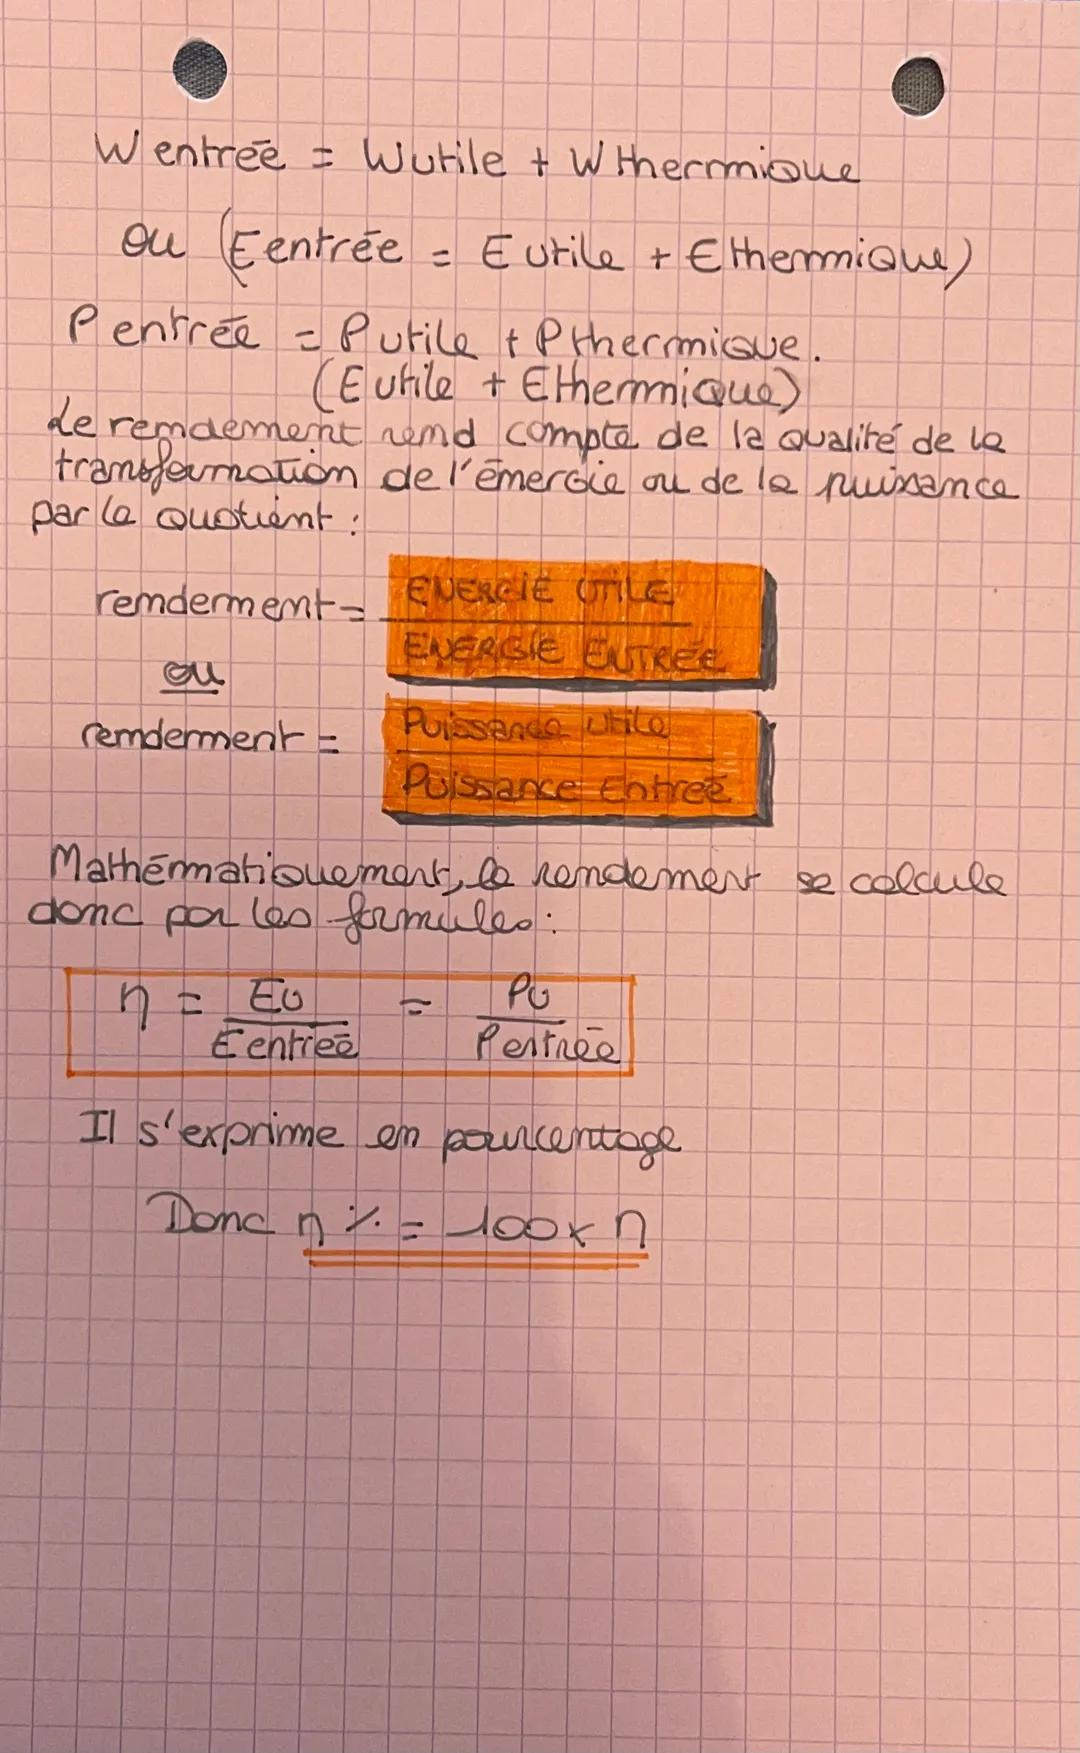 W entrée = Wutile + W thermique
ou (E entrée = E utile + E thermique)
P entrée = P utile + P thermique.
(E utile + E thermique)
Le rendement rend compte de la qualité de la
transformation de l'énergie ou de la puissance
par le quotient :
rendement = ENERGIE UTILE
ENERGIE ENTRÉE
ou
rendement = Puissance utile
Puissance Entrée
Mathématiquement, le rendement se calcule
donc par les formules :
η = EU / E entrée = PU / P entrée
Il s'exprime en pourcentage
Donc η % = 100 x η